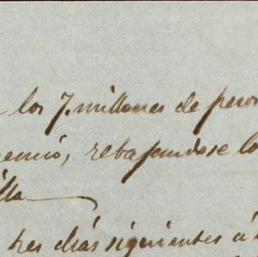 los 7. millones de pesos
rebajandose lo
lla
tres dias siguientes á